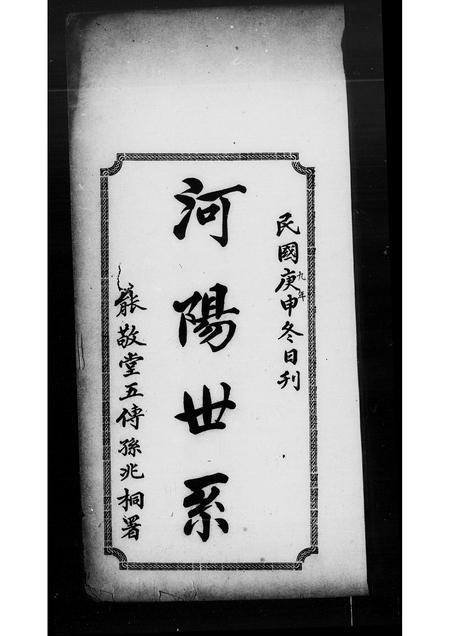 民國九年庚申冬日刊
河陽世系
敬堂五傳孫兆桐署